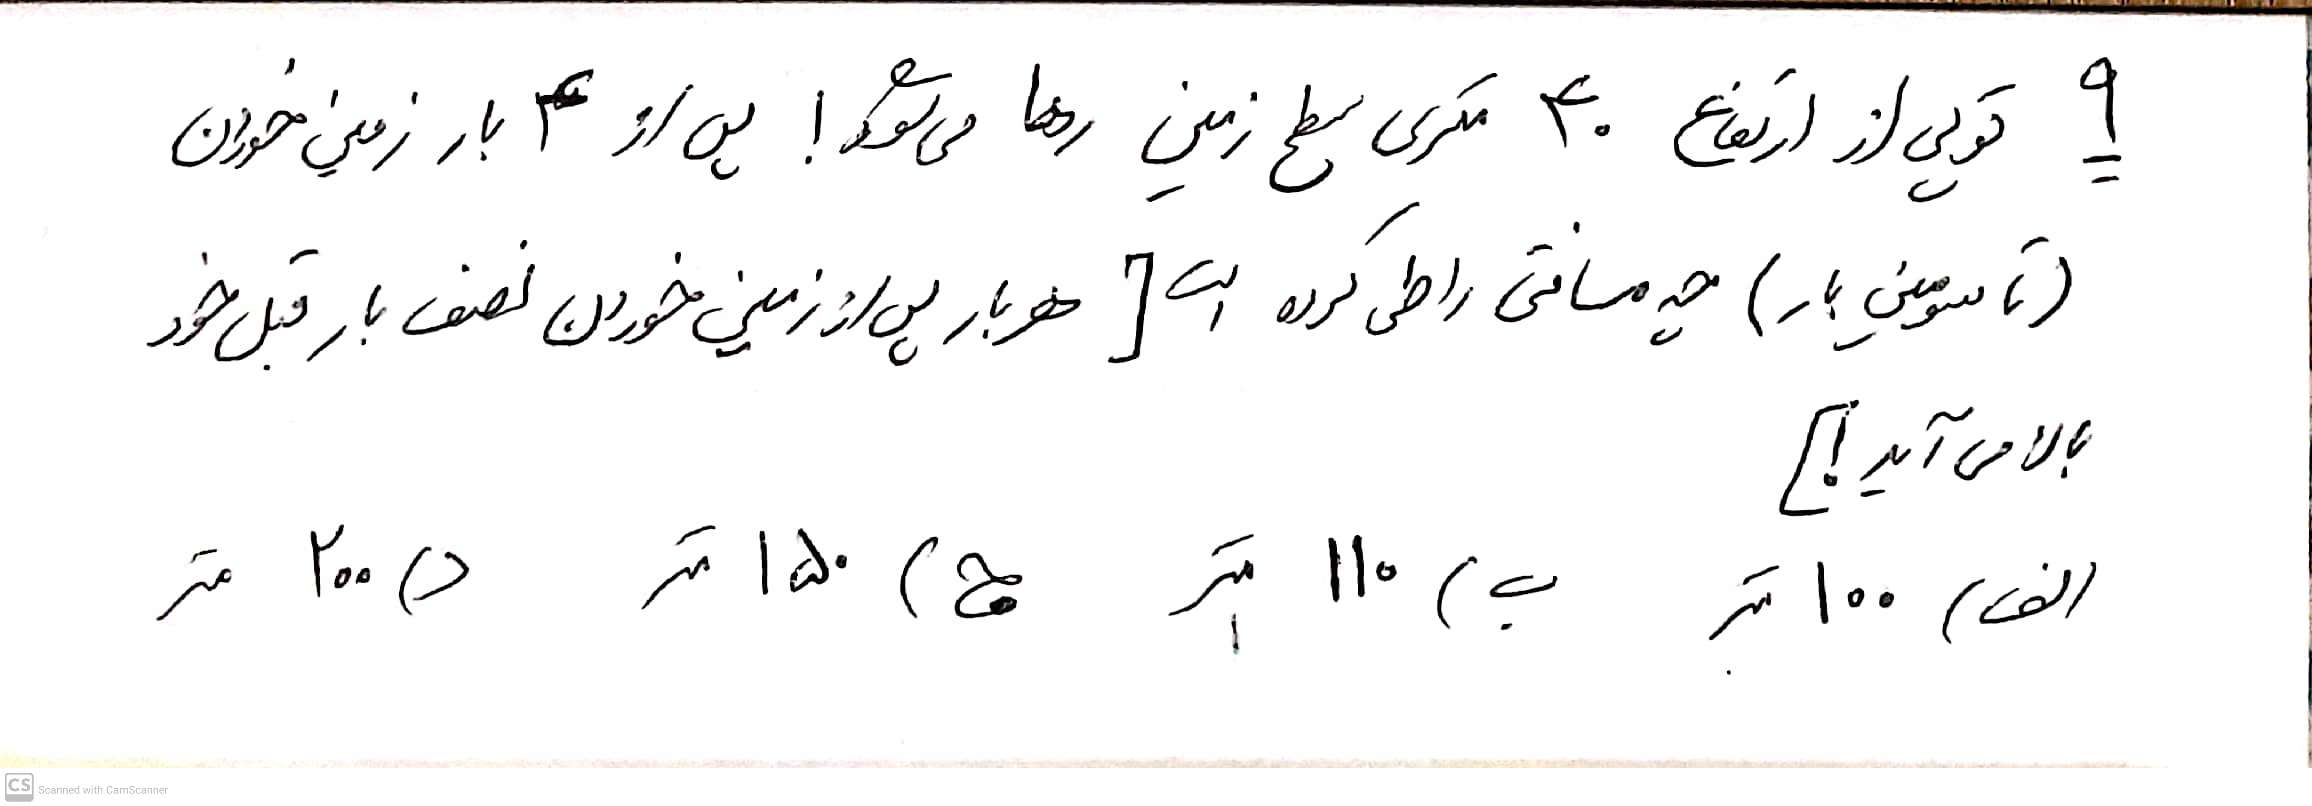 ۹ توپی از ارتفاع ۴۰ متری سطح زمین رها می‌شود! پس از ۳ بار زمین خوردن
(تا سومین بار) چه مسافتی را طی کرده است [هر بار پس از زمین خوردن نصف بار قبل خود
بالا می‌آید!]
الف) ۱۰۰ متر ب) ۱۱۰ متر ج) ۱۵۰ متر د) ۲۰۰ متر
CS Scanned with CamScanner